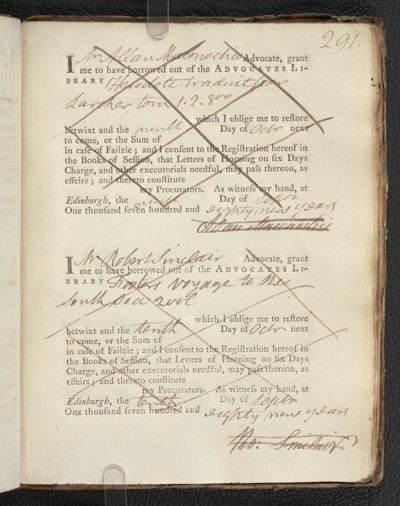 291.
I Mr Allan Maconochie Advocate, grant
me to have borrowed out of the ADVOCATES LI-
BRARY Herodote traduit par
Larcher tom 1. 2. 8vo
which I oblige me to reſtore
betwixt and the ninth Day of Octr next
to come, or the Sum of
in caſe of Failzie; and I conſent to the Regiſtration hereof in
the Books of Seſſion, that Letters of Horning on ſix Days
Charge, and other executorials needful, may paſs thereon, as
effeirs; and thereto conſtitute
my Procurators. As witneſs my hand, at
Edinburgh, the Day of Septr
One thouſand ſeven hundred and eighty nine years
Allan Maconochie
I Mr Robert Sinclair Advocate, grant
me to have borrowed out of the ADVOCATES LI-
BRARY voyage to the
South Sea 2 vol
which I oblige me to reſtore
betwixt and the tenth Day of Octr next
to come, or the Sum of
in caſe of Failzie; and I conſent to the Regiſtration hereof in
the Books of Seſſion, that Letters of Horning on ſix Days
Charge, and other executorials needful, may paſs thereon, as
effeirs; and thereto conſtitute
my Procurators. As witneſs my hand, at
Edinburgh, the tenth Day of Septr
One thouſand ſeven hundred and eighty nine years
Ro: Sinclair